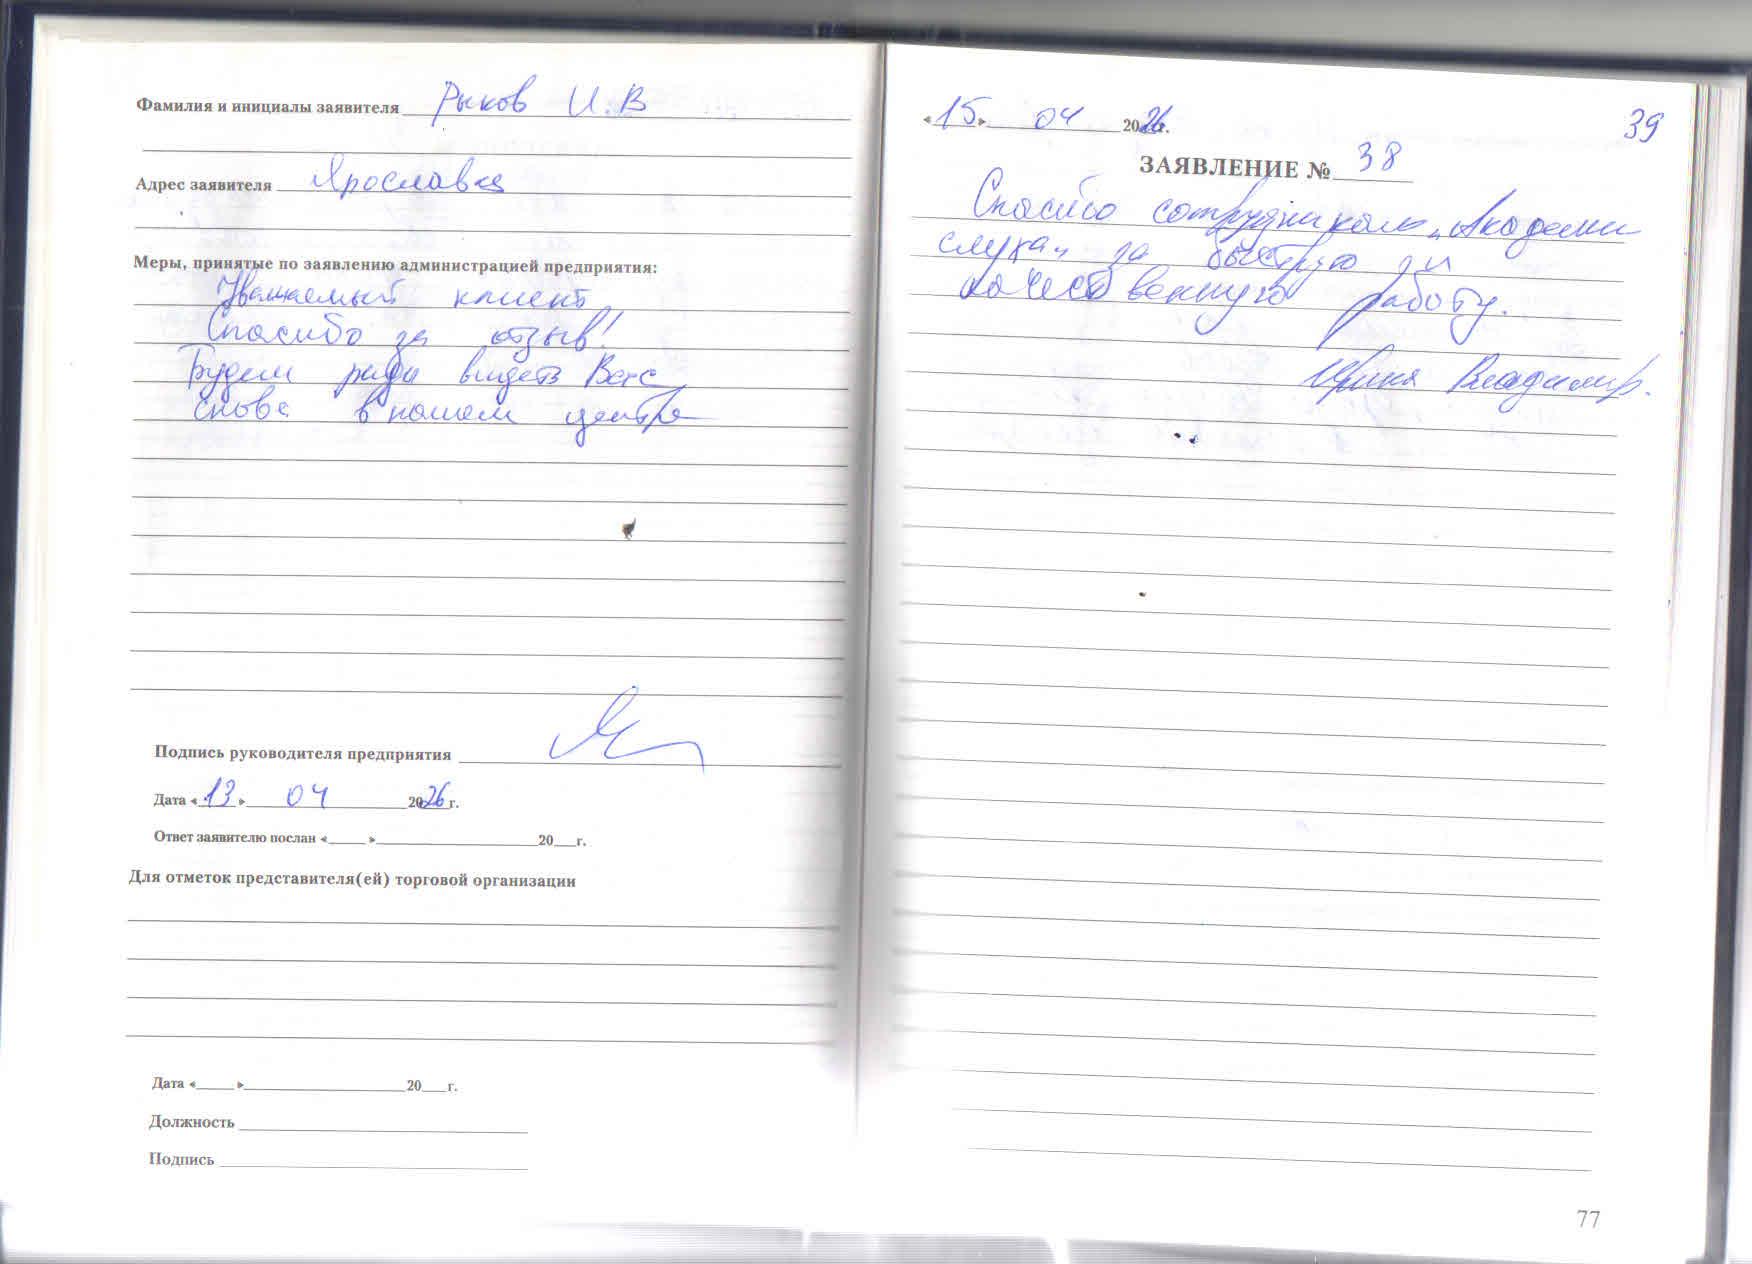 Фамилия и инициалы заявителя Рыков И.В
Адрес заявителя Ярославка
Меры, принятые по заявлению администрацией предприятия:
Уважаемый клиент
Спасибо за отзыв!
Будем рады видеть Вас
снова в нашем центре
Подпись руководителя предприятия
Дата «13» 04 2026 г.
Ответ заявителю послан «____» ____ 20__г.
Для отметок представителя(ей) торговой организации
Дата «____» ____ 20__г.
Должность
Подпись
«15» 04 2026г.
39
ЗАЯВЛЕНИЕ № 38
Спасибо сотрудникам „Академии
слуха" за быструю и
качественную работу.
Ирина Владимир.
77